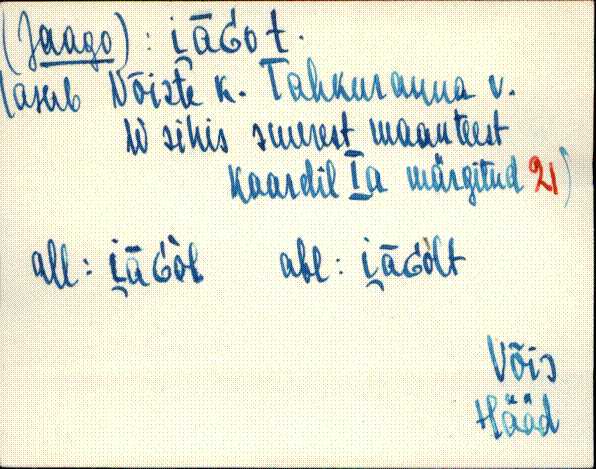 (Jaago): i̯āGot.
(asub Võiste k. Tahkuranna v.
W sihis suurest maanteest
Kaardil Ia märgitud 21)
all: i̯āGòl abl: i̯āGòlt
Võis
Hääd